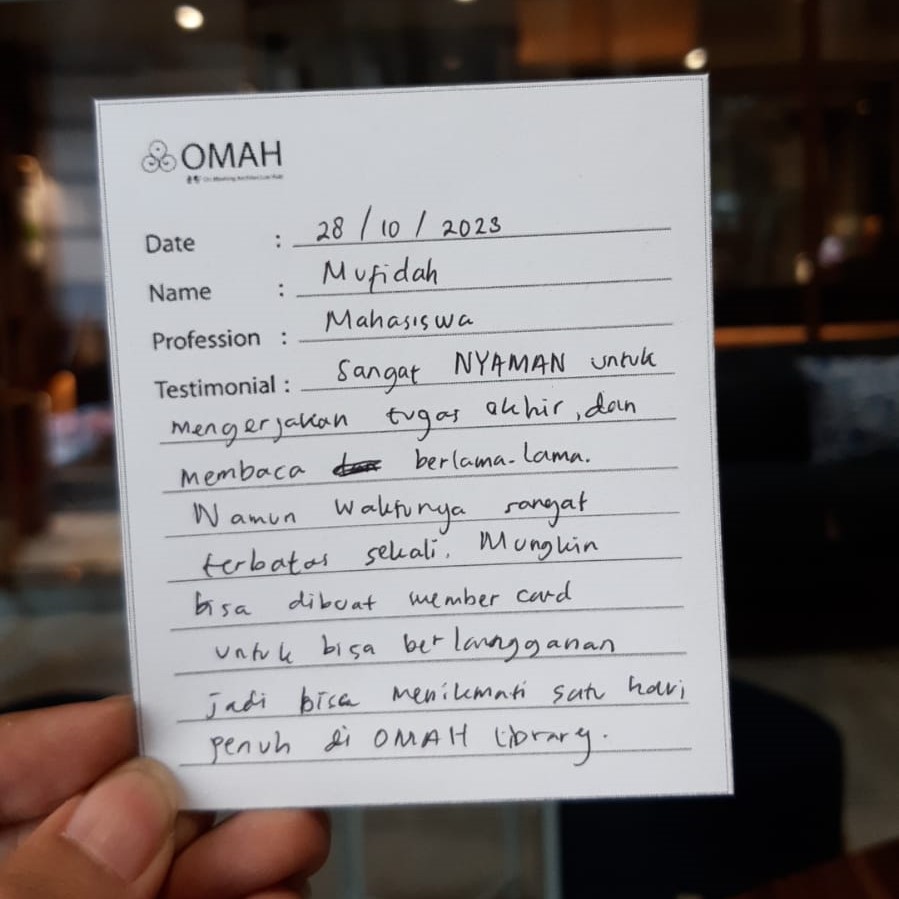 OMAH
Date : 28 / 10 / 2023
Name : Mufidah
Profession : Mahasiswa
Testimonial : Sangat NYAMAN untuk
mengerjakan tugas akhir, dan
membaca berlama-lama.
Namun Waktunya sangat
terbatas sekali. Mungkin
bisa dibuat member card
untuk bisa berlangganan
jadi bisa menikmati satu hari
penuh di OMAH Library.